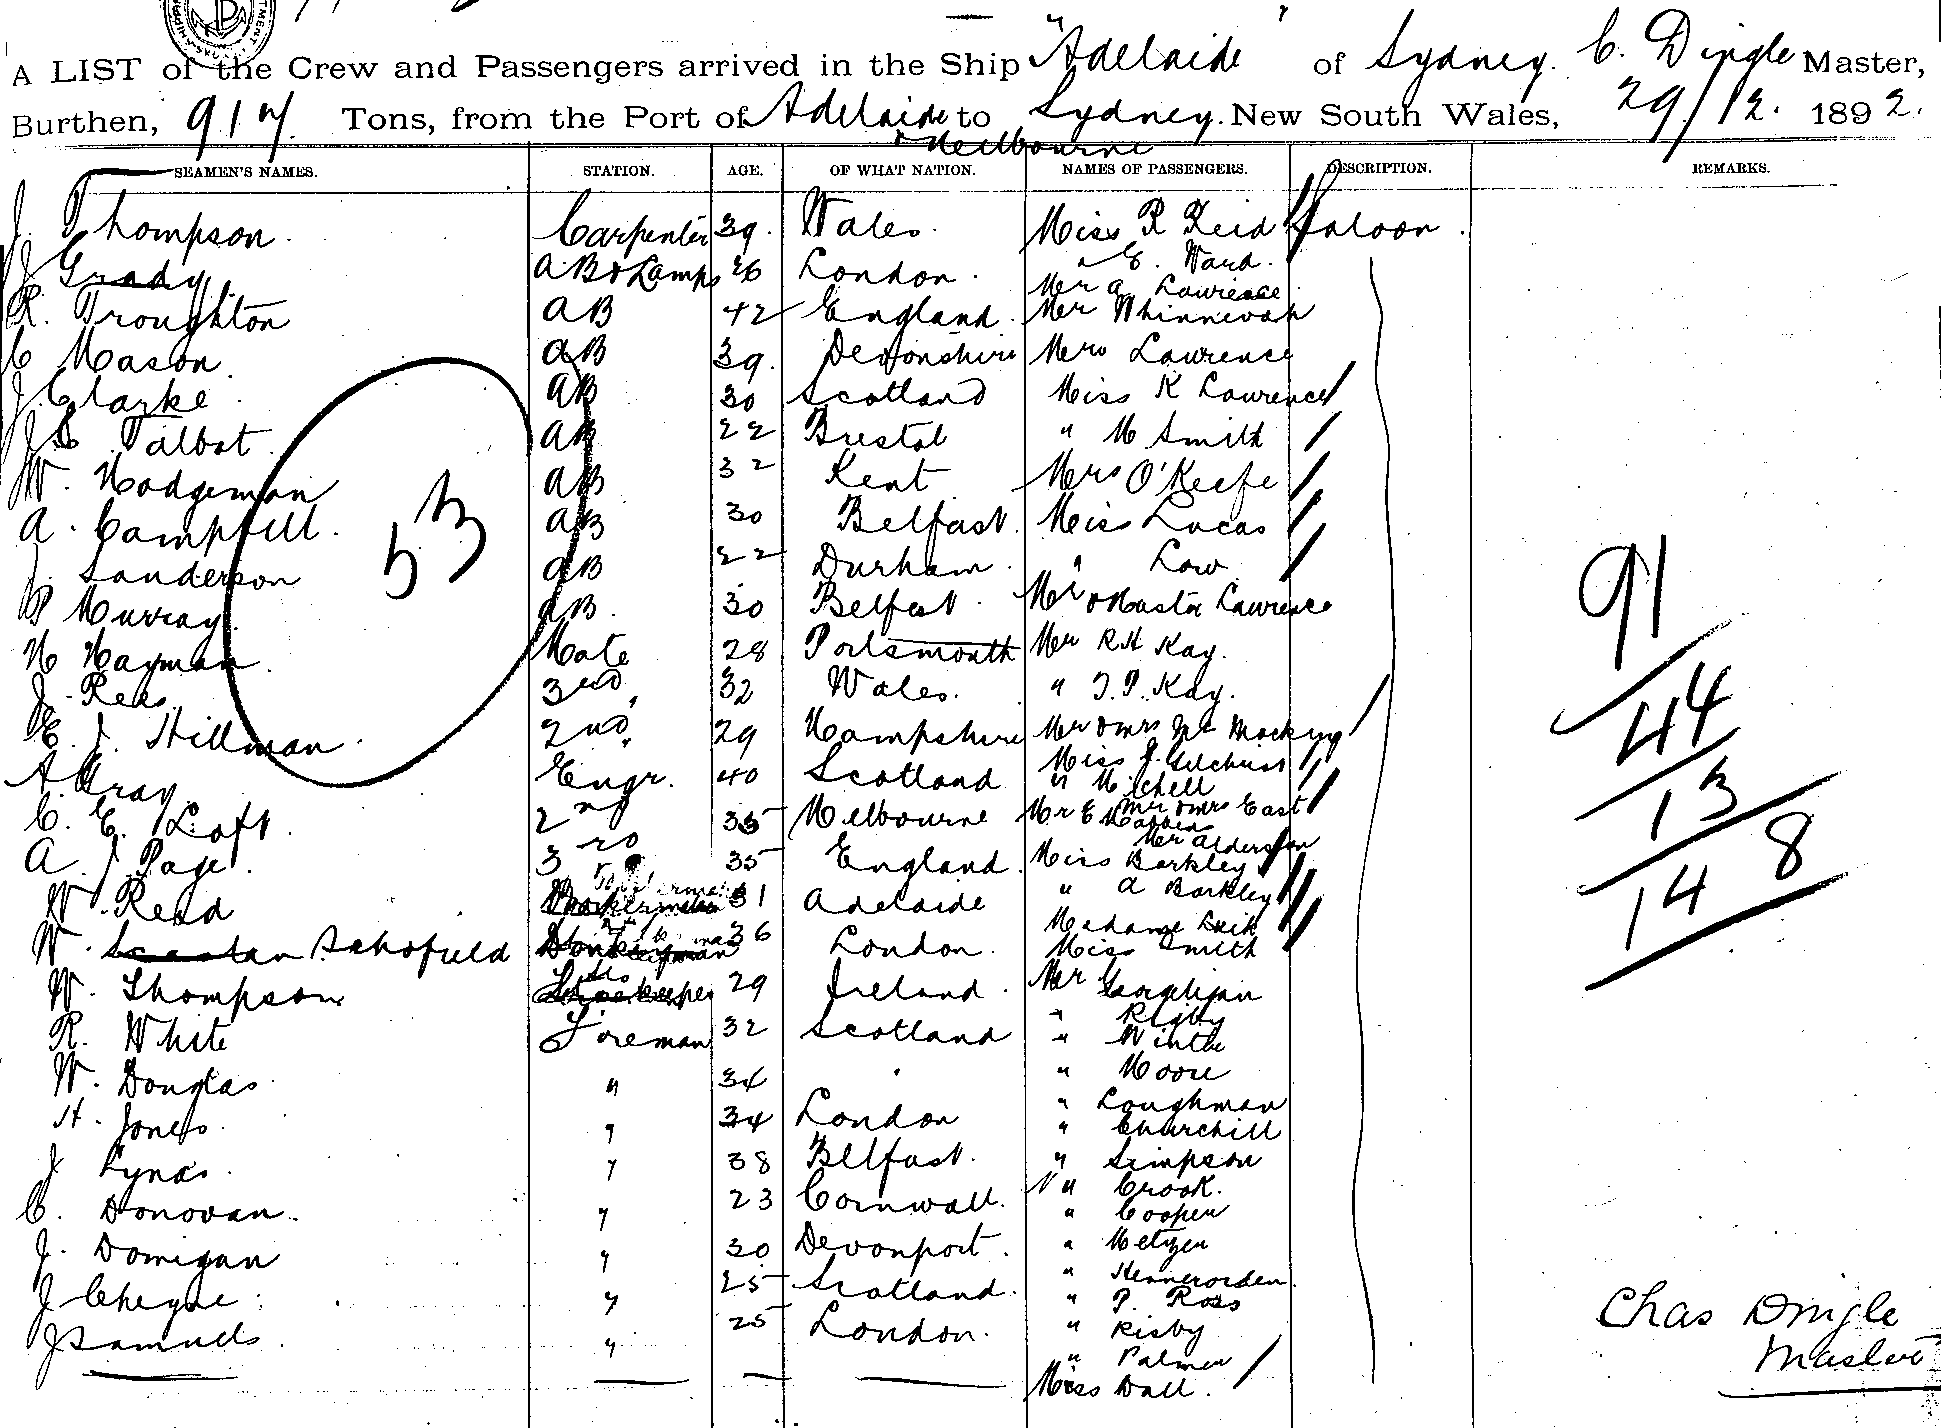 A LIST of the Crew and Passengers arrived in the Ship "Adelaide" of Sydney. C. Dingle Master,
Burthen, 917 Tons, from the Port of Adelaide & Melbourne to Sydney. New South Wales, 29/12. 1892.
SEAMEN'S NAMES. STATION. AGE. OF WHAT NATION. NAMES OF PASSENGERS. DESCRIPTION. REMARKS.
J. Thompson. Carpenter 39. Wales. Miss R Reid Saloon.
J Grady AB & Lamps 26 London. " E. Ward.
Mr A Lawrence
R. Troughton AB 42 England. Mr
C Mason. AB 39. Devonshire Mrs Lawrence
J Clarke AB 30 Scotland Miss K Lawrence
Talbot. AB 22 Bristol " M Smith
W. Hodgeman AB 32 Kent Mrs O'Keefe
A. Campbell. AB 30 Belfast. Miss Lucas
J. Sanderson AB 22 Durham. " Low
Murray AB. 30 Belfast. Mr & Master Lawrence
H Hayman. Mate 28 Portsmouth Mr R H Kay.
J. Rees 3rd " 32 Wales. " T. P. Kay.
E. J. Hillman. 2nd " 29 Hampshire Mr & Mrs
Miss J. Gilchrist
A. Gray Engr. 40 Scotland " Mitchell
Mr & Mrs East
C. E. Loft. 2nd 35 Melbourne Mr E
Mr Alderson
A J Page. 3rd 35 England. Miss Barkley
W. Read 31 Adelaide " A Barkley
Madame
W. Schofield 36 London. Miss Smith
W. Thompson 29 Ireland. Mr
" Rigby
R. White Fireman 32 Scotland "
W. Douglas " 34 " " Moore
" Loughman
H. Jones. " 34 London " Churchill
J Lynas. " 38 Belfast. " Simpson
" Crook.
C. Donovan. " 23 Cornwall. " Cooper
J. Domigan " 30 Devonport. "
J Cheyne " 25 Scotland. " P. Ross
J Samuels " 25 London. " Risby
" Palmer
Miss Dall.
53
91
44
13
148
Chas Dingle
Master